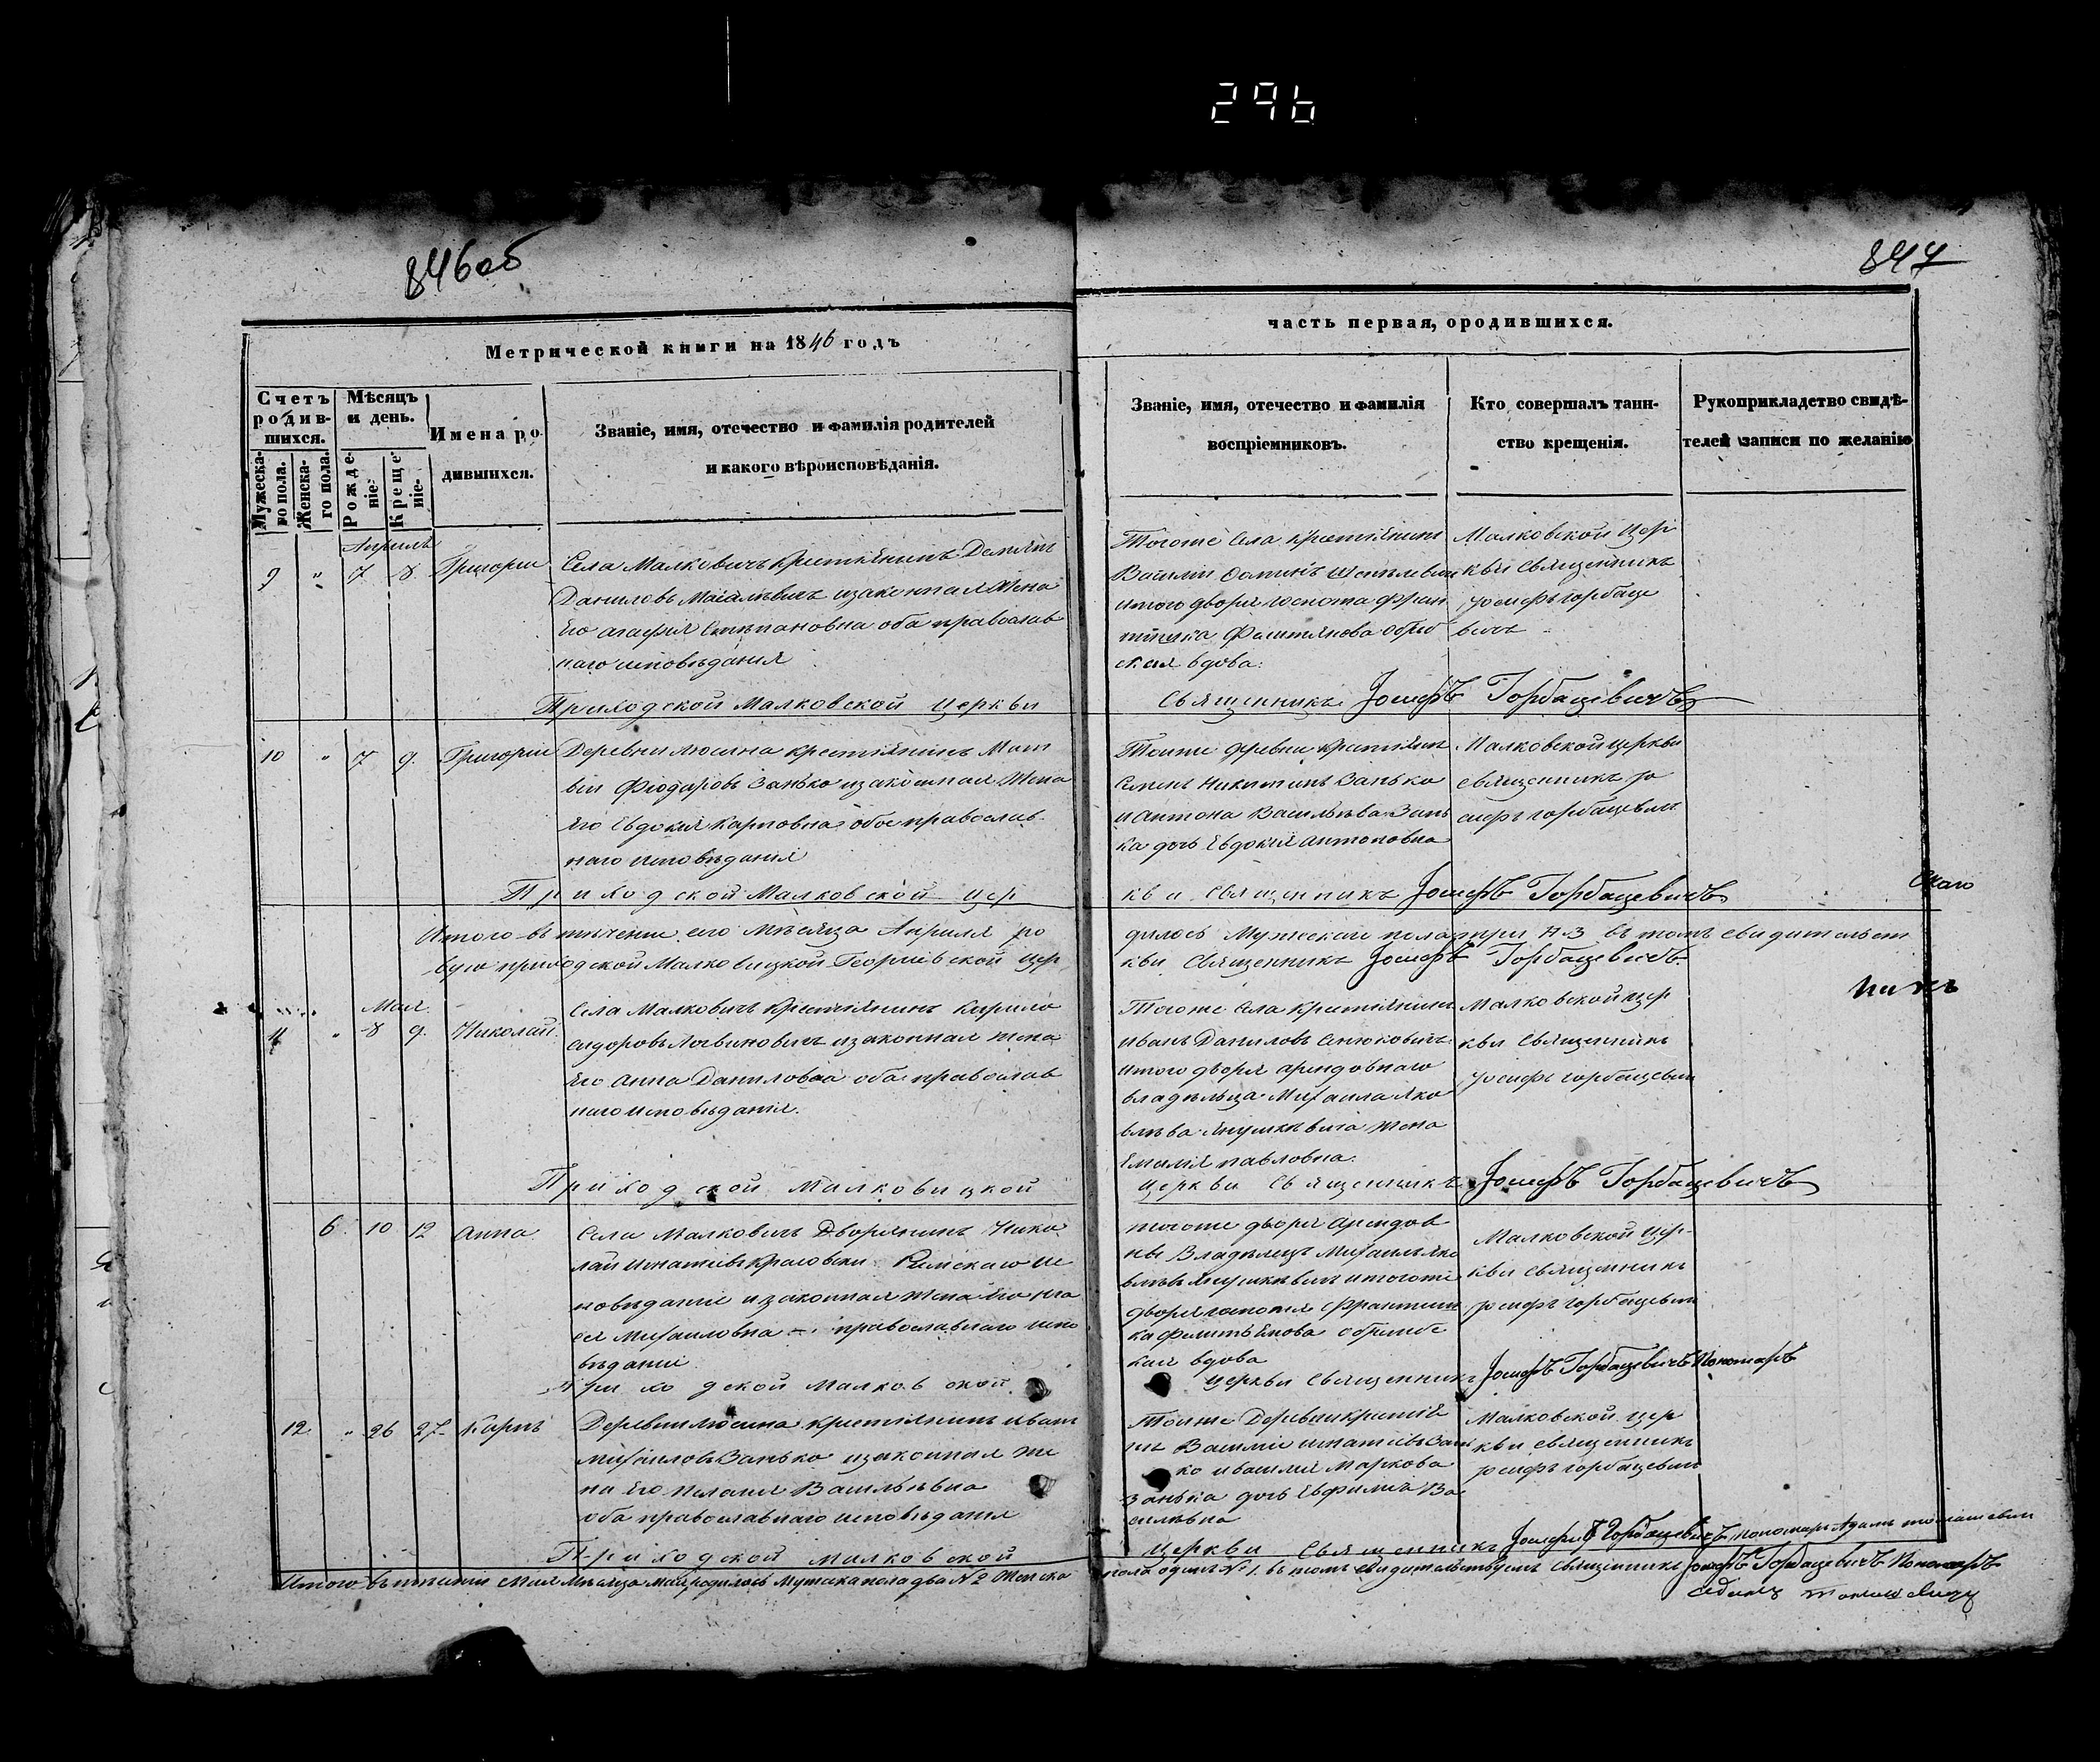 296
846об
847
Метрической книги на 1846 годъ
часть первая, ородившихся.
Счетъ родив-шихся.
Мѣсяцъ и день.
Имена ро-
дившихся.
Званіе, имя, отечество и фамилія родителей
и какого вѣроисповѣданія.
Мужеска-го пола.
Женска-го пола.
Рожде-ніе.
Креще-ніе.
Званіе, имя, отечество и фамилія
воспріемниковъ.
Кто совершалъ таин-
ство крещенія.
Рукоприкладство свидѣ-
телей записи по желанію
Апрель
9 " 7 8 Григоріи
Села Малковичъ крестіянинъ
Даниловъ изаконная жена
Его агафія Стѣпановна оба православ
наго исповѣданія
Тогоже села крестіянинъ
Василіи
итого двора
вдова.
Малковской цер
кви Священникъ
іосифъ горбаце
вичъ
Приходской Малковской церкви
Священникъ Іосифъ Горбацевичъ
10 " 7 9. Григоріи
Деревни люсина крестіянинъ Мат
віи Фіодоровъ Занько изаконная жена
Его Евдокія Карповна обое православ
наго исповѣданія
Тоиже деревни крестіянинъ
Семенъ Никитинъ Занько
и антона Васильѣва Зань
ка дочь Евдокія антоновна
Малковской церкви
священникъ іо
сифъ горбацевичъ
Приходской Малковской цер
кви Священникъ Іосифъ Горбацевичъ
Итого въ тѣчении сего мѣсяца Апреля ро
дилось Мужескаго пола три №3 въ томъ свидительст
скаго
вую приходской Малковицкой Георгіевской цер
кви Священникъ Іосифъ Горбацевичъ.
Мая
11 " 8 9. Николай
Села Малковичъ крестіянинъ Кирило
сидоровъ изаконная жена
Его анна Даниловна оба православ
наго исповѣданія.
Тогоже села крестіянинъ
иванъ Даниловъ
итого двора арендовнаго
владѣльца Михаила Яко
влѣва Янушкѣвича жена
Емилія павловна.
Малковской цер
кви Священникъ
іосифъ горбацевичъ
Приходской Малковицкой
церкви Священникъ Іосифъ Горбацевичъ
6. 10 12 анна
Села Малковичъ Дворянинъ Нико
лаи игнатіевъ Римскаго ис
повѣданіе изаконная жена Его
Михаиловна — православнаго испо
вѣданіе
тогоже двора арендов
ны Владѣлецъ Михаилъ Яко
влѣвъ Янушкѣвичъ итогоже
двора
вдова
Малковской цер-
кви священникъ
іосифъ горбацевичъ
Приходской Малковской
церкви Священникъ Іосифъ Горбацевичъ Пономарь
12 " 26 27 Карпъ
Деревни люсина крестіянинъ иванъ
михаиловъ Занько изаконная же
на Его Пелагія Васильѣвна
оба православнаго исповѣданія
Тоиже Деревни крестія
нъ Василіи игнатіевъ Зань
ко ивасилія Маркова
Занька дочь Евфимія Ва
силѣвна
Малковской цер
кви священникъ
іосифъ горбацевичъ
Приходской Малковской
церкви Священникъ Іосифъ Горбацевичъ, пономарь Адамъ
Итого въ Мая Мѣсяца родилось Мужеска пола два №2 Женска
пола одинъ №1. въ томъ свидительствуемъ Священникъ Іосифъ Горбацевичъ Пономарь